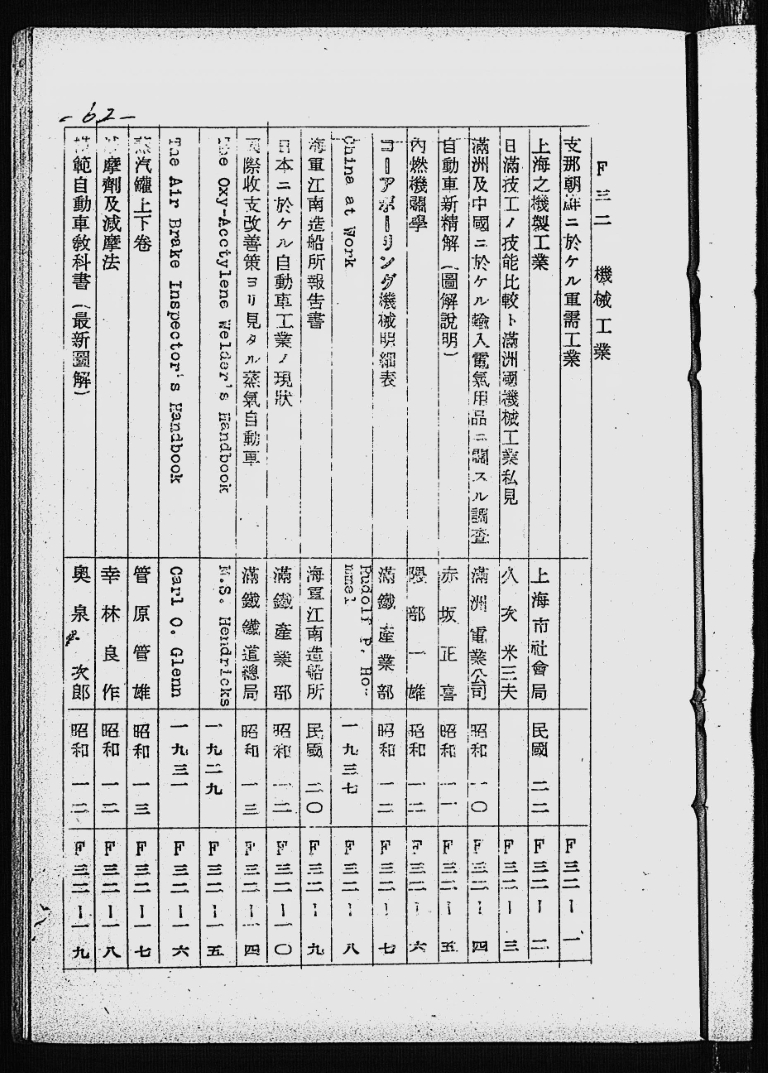 -62-
F三二 機械工業
支那朝鮮ニ於ケル軍需工業 F三二ー一
上海之機製工業 上海市社會局 民國 二二 F三二ー二
日滿技工ノ技能比較ト滿洲國機械工業私見 久次米三夫 F三二ー三
滿洲及中國ニ於ケル輸入電氣用品ニ關スル調査 滿洲電業公司 昭和 一〇 F三二ー四
自動車新精解(圖解說明) 赤坂正喜 昭和 一一 F三二ー五
內燃機關學 隈部一雄 昭和 一二 F三二ー六
コーアボーリング機械明細表 滿鐵產業部 昭和 一二 F三二ー七
China at Work Rudolf P. Hommel 一九三七 F三二ー八
海軍江南造船所報告書 海軍江南造船所 民國 二〇 F三二ー九
日本ニ於ケル自動車工業ノ現狀 滿鐵產業部 昭和 一二 F三二ー一〇
國際收支改善策ヨリ見タル蒸氣自動車 滿鐵鐵道總局 昭和 一三 F三二ー一四
The Oxy-Acctylene Welder's Handbook M.S. Hendricks 一九二九 F三二ー一五
The Air Brake Inspector's Handbook Carl O. Glenn 一九三一 F三二ー一六
汽罐上下卷 管原管雄 昭和 一三 F三二ー一七
摩劑及減摩法 幸林良作 昭和 一二 F三二ー一八
範自動車教科書(最新圖解) 奧泉 次郎 昭和 一二 F三二ー一九